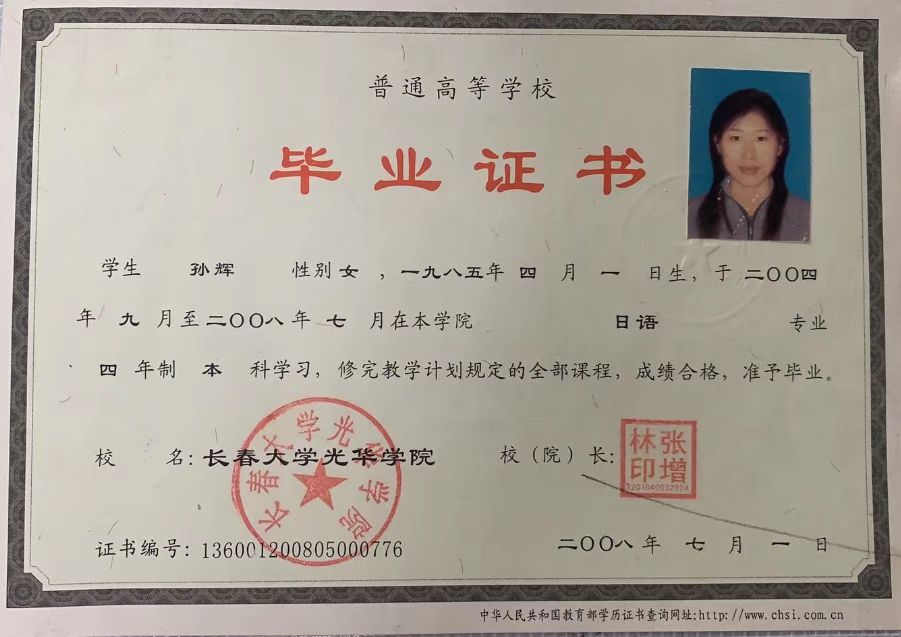 普通高等学校
毕业证书
学生 孙辉 性别 女 ，一九八五年 四 月 一 日生，于 二〇〇四
年 九 月至 二〇〇八 年 七 月在本学院 日语 专业
四 年制 本 科学习，修完教学计划规定的全部课程，成绩合格，准予毕业。
校 名：长春大学光华学院 校（院）长：
长春大学光华学院
张增林印
2201040032914
证书编号：136001200805000776 二〇〇八 年 七 月 一 日
中华人民共和国教育部学历证书查询网址:http://www.chsi.com.cn